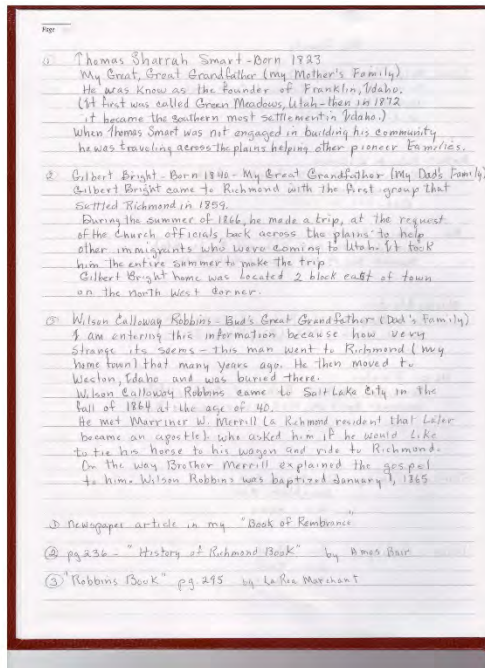 Page
① Thomas Sharrah Smart - Born 1823
My Great, Great Grandfather (my Mother's Family)
He was Know as the founder of Franklin, Idaho.
(It first was called Green Meadows, Utah - then in 1872
it became the Southern most settlement in Idaho.)
When Thomas Smart was not engaged in building his community
he was traveling across the plains helping other pioneer families.
2. Gilbert Bright - Born 1840 - My Great Grandfather (My Dad's Family)
Gilbert Bright came to Richmond with the first group that
Settled Richmond in 1859.
During the summer of 1866, he made a trip, at the request
of the Church officials, back across the plains to help
other immigrants who were coming to Utah. It took
him the entire summer to make the trip.
Gilbert Bright home was located 2 block east of town
on the North West Corner.
③ Wilson Calloway Robbins - Bud's Great Grandfather (Dad's Family)
I am entering this information because how very
strange its seems - this man went to Richmond (my
home town) that many years ago. He then moved to
Weston, Idaho and was buried there.
Wilson Calloway Robbins came to Salt Lake City in the
fall of 1864 at the age of 40.
He met Marriner W. Merrill (a Richmond resident that later
became an apostle) who asked him if he would like
to tie his horse to his wagon and ride to Richmond.
On the way Brother Merrill explained the gospel
to him. Wilson Robbins was baptized January 1, 1865
① Newspaper article in my "Book of Rembrance"
② pg 236 - "History of Richmond Book" by Amos Bair
③ "Robbins Book" pg. 295 by La Rae Marchant